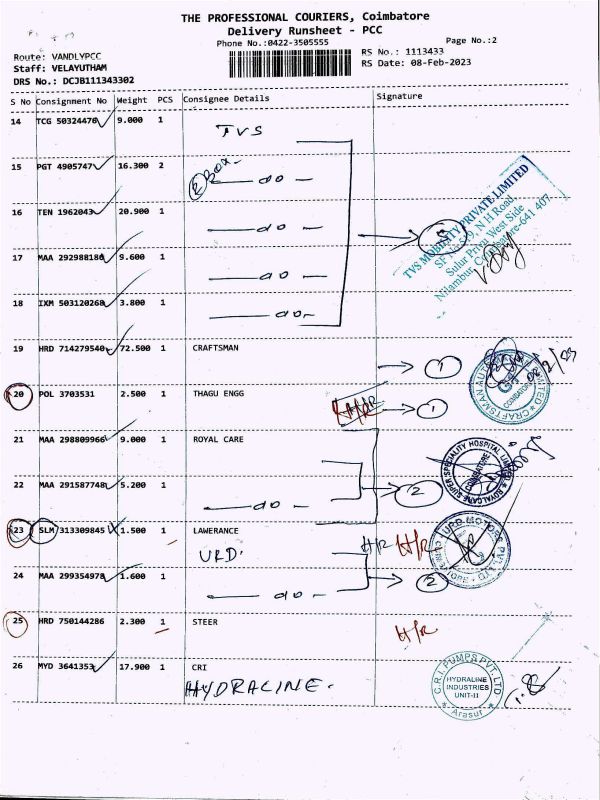 THE PROFESSIONAL COURIERS, Coimbatore
Delivery Runsheet - PCC
Phone No.:0422-3505555
Page No.:2
Route: VANDLYPCC
Staff: VELAYUTHAM
DRS No.: DCJB111343302
RS No.: 1113433
RS Date: 08-Feb-2023
S No Consignment No Weight PCS Consignee Details Signature
14 TCG 50324476 9.000 1
TVS
15 PGT 4905747 16.300 2
2 Box
do
16 TEN 1962043 20.900 1
do
17 MAA 292988180 9.600 1
do
18 IXM 503120260 3.800 1
do
5
TVS MOBILITY PRIVATE LIMITED
SF No 519, N H Road,
Sulur Pirivu West Side
Nilambur, Coimbatore-641 407.
19 HRD 714279540 72.500 1 CRAFTSMAN
1
CRAFTSMAN LIMITED
COIMBATORE
20 POL 3703531 2.500 1 THAGU ENGG
1
21 MAA 298809966 9.000 1 ROYAL CARE
ROYALCARE SUPER SPECIALITY HOSPITAL LIMITED
COIMBATORE
22 MAA 291587748 5.200 1
do
2
23 SLM 313309845 1.500 1 LAWERANCE
URD.
H/R H/R
URD MOTORS PVT LTD
24 MAA 299354978 1.600 1
do
2
25 HRD 750144286 2.300 1 STEER
H/R
26 MYD 3641353 17.900 1 CRI
HYDRALINE.
C.R.I. PUMPS PVT. LTD
HYDRALINE
INDUSTRIES
UNIT-II
Arasur